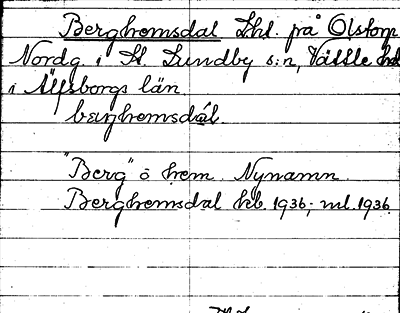 Berghemsdal Lht. på Olstorp
Nordg. i St. Lundby s:n, Vättle hd
i Älfsborgs län.
bærjhemsdál.
"Berg" o hem. Nynamn.
Berghemsdal kb. 1936; ml. 1936